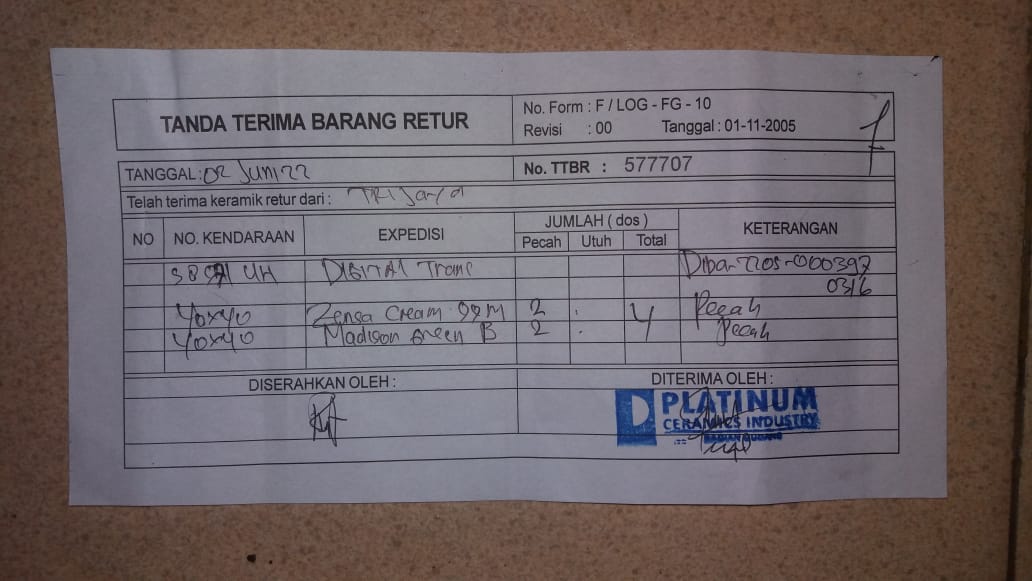 TANDA TERIMA BARANG RETUR
No. Form : F / LOG - FG - 10
Revisi : 00 Tanggal : 01-11-2005
TANGGAL : 02 Juni 22
No. TTBR : 577707
Telah terima keramik retur dari : TRI Jaya
NO NO. KENDARAAN EXPEDISI JUMLAH ( dos ) KETERANGAN
Pecah Utuh Total
UH DIGITAL Trans
0316
40x40 Zensa Cream 99 M 2 4 Pecah
40x40 Madison Green B 2 Pecah
DISERAHKAN OLEH :
DITERIMA OLEH :
PLATINUM
CERAMICS INDUSTRY